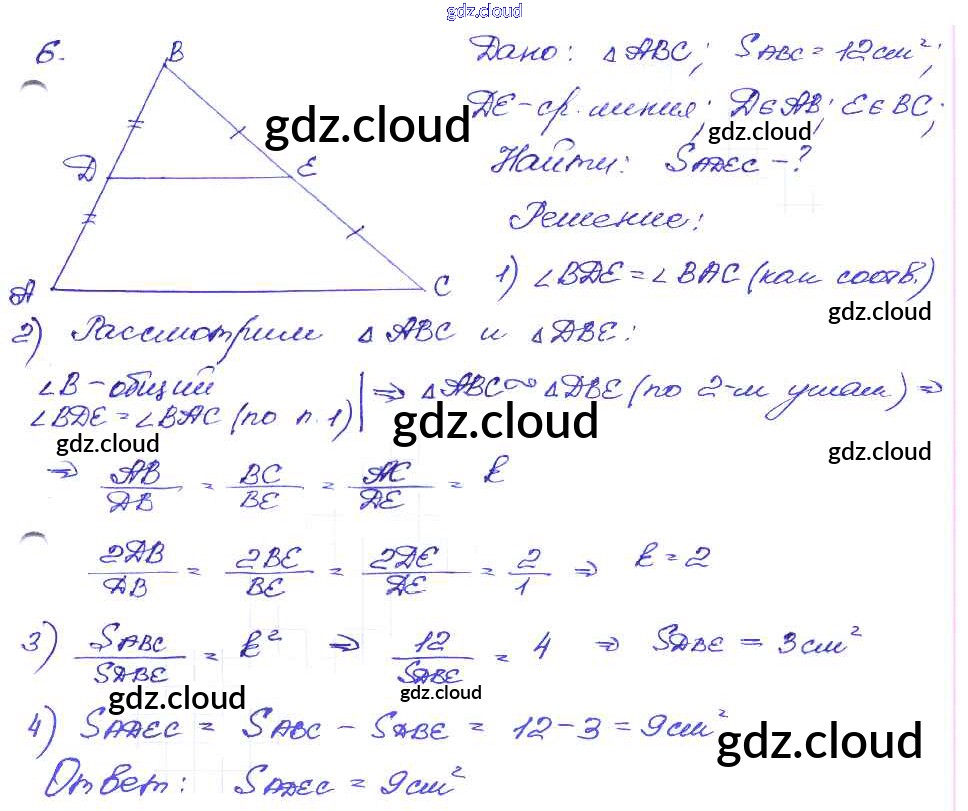 gdz.cloud
6.
B
D
E
A
C
gdz.cloud
Дано: △ABC; S_ABC = 12 см²;
DE – ср. линия; D∈AB; E∈BC;
gdz.cloud
Найти: S_ADEC – ?
Решение:
1) ∠BDE = ∠BAC (как соотв.)
gdz.cloud
2) Рассмотрим △ABC и △DBE:
∠B – общий
∠BDE = ∠BAC (по п.1) | ⇒ △ABC ~ △DBE (по 2-м углам) ⇒
gdz.cloud
gdz.cloud
gdz.cloud
⇒ AB/DB = BC/BE = AC/DE = k
2DB/DB = 2BE/BE = 2DE/DE = 2/1 ⇒ k = 2
3) S_ABC/S_DBE = k² ⇒ 12/S_DBE = 4 ⇒ S_DBE = 3 см²
gdz.cloud
gdz.cloud
4) S_ADEC = S_ABC – S_DBE = 12 – 3 = 9 см²
gdz.cloud
Ответ: S_ADEC = 9 см²